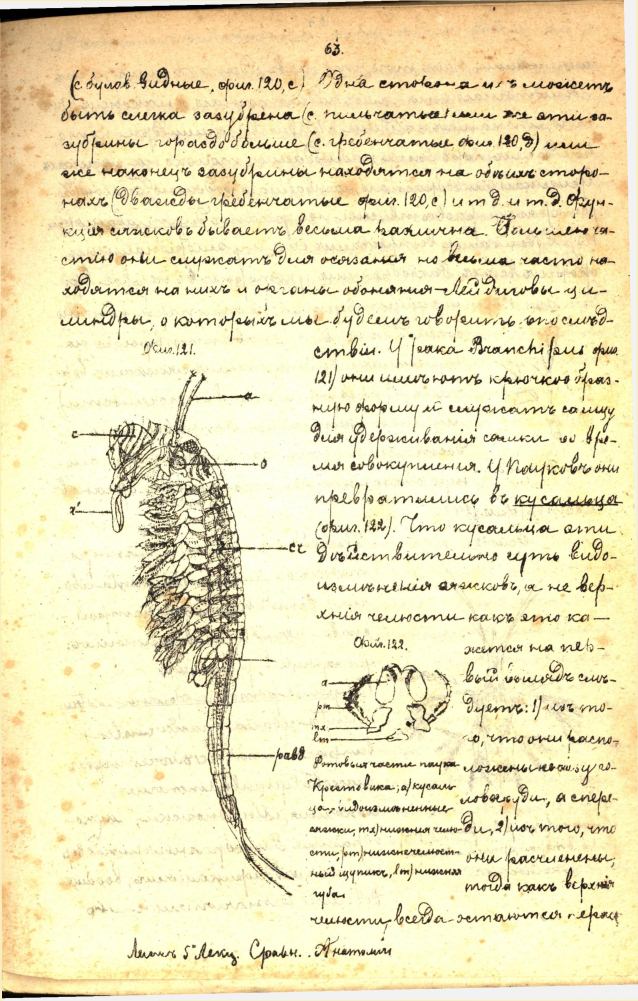 63.
(с булавовидные, фиг. 120, с) Одна сторона ихъ можетъ
быть слегка зазубрена (с. пильчатые) или же эти за-
зубрины гораздо больше (с. гребенчатые фиг. 120, д) или
же наконецъ зазубрины находятся на обѣихъ сторо-
нахъ (дважды гребенчатые фиг. 120, с) и т. д. и т. д. Фун-
кція сяжковъ бываетъ весьма различна. Большею ча-
стію они служатъ для осязанія но весьма часто на-
ходятся на нихъ и органы обонянія – Лейдиговы ци-
линдры, о которыхъ мы будемъ говорить впослѣд-
Фиг. 121.
ствіи. У рака Branchipus фиг.
121) они имѣютъ крючкообраз-
ную форму и служатъ самцу
для удерживанія самки во вре-
мя совокупленія. У Пауковъ они
превратились въ кусальца
(фиг. 122). Что кусальца эти
дѣйствительно суть видо-
измѣненія сяжковъ, а не вер-
хнія челюсти какъ это ка-
жется на пер-
вый взглядъ слѣ-
дуетъ: 1) изъ то-
го, что они распо-
ложены не позади го-
ловы, а спере-
ди, 2) изъ того, что
они расчленены,
тогда какъ верхнія
челюсти всегда остаются нерас
a
c
o
x'
ст
равд
Фиг. 122.
a
pm
mx
lm
Ротовыя части паука
Крестовика; a) кусаль-
ца, видоизмѣненные
сяжки, mx) нижнія челю-
сти, pm) нижнечелюст-
ный щупикъ, lm) нижняя
губа.
5 Лекц. Сравн. Анатоміи